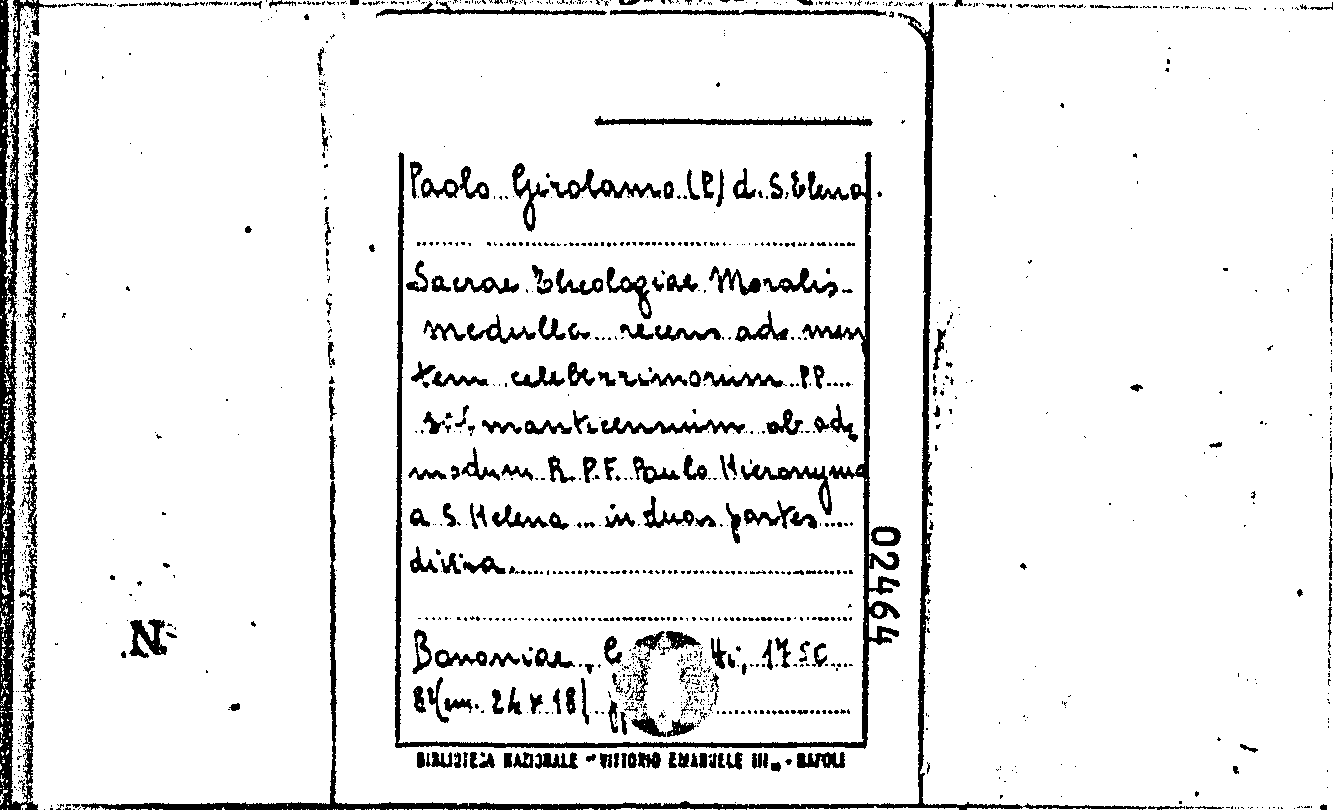 Paolo Girolamo (P.) d. S. Elena.
Sacrae Theologiae Moralis
medulla recens ad men
tem celeberrimorum PP.
manticensium ab ad
modum R. P. F. Paulo Hieronymo
a S. Helena ... in duas partes
divisa.
Bononiae, 1750
8º (cm. 24 x 18)
BIBLIOTECA NAZIONALE "VITTORIO EMANUELE III" - NAPOLI
02464
N